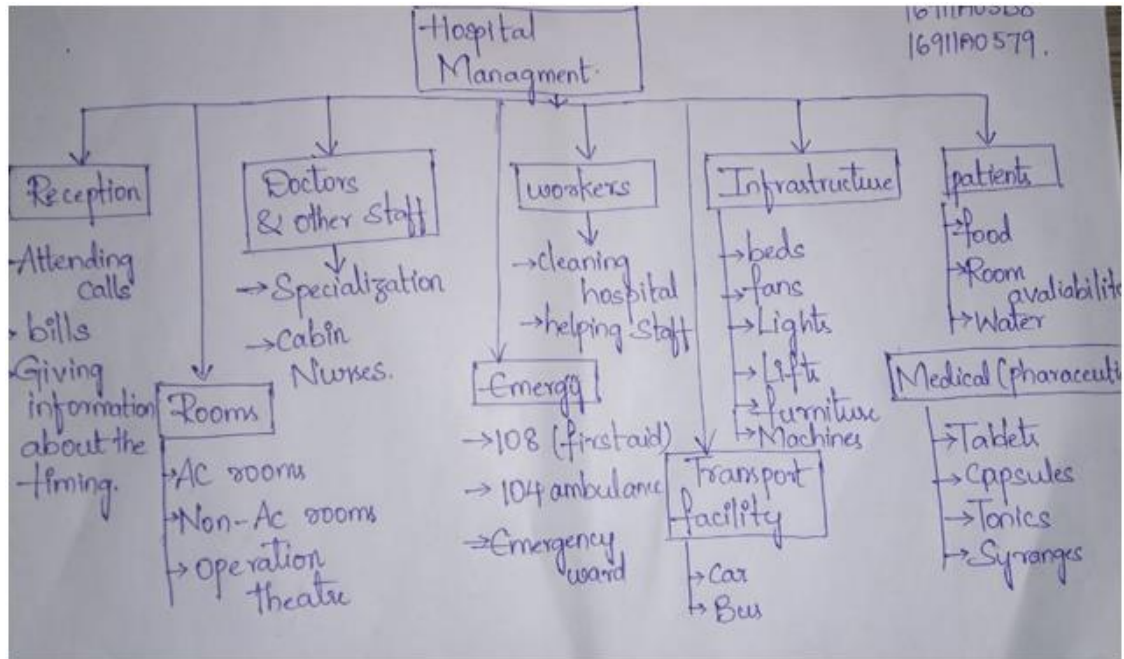 Hospital
Managment.
16911A0579.
Reception
Attending
calls
bills
Giving
information
about the
timing.
Rooms
AC rooms
Non-Ac rooms
Operation
theatre
Doctors
& other staff
Specialization
Cabin
Nurses.
workers
cleaning
hospital
helping staff
Emergy
108 (first aid)
104 ambulance
Emergency
ward
Infrastructure
beds
fans
Lights
Lifts
furniture
Machines
Transport
facility
Car
Bus
patients
food
Room
avaliabilite
Water
Medical (pharaceuti
Tablets
Capsules
Tonics
Syranges